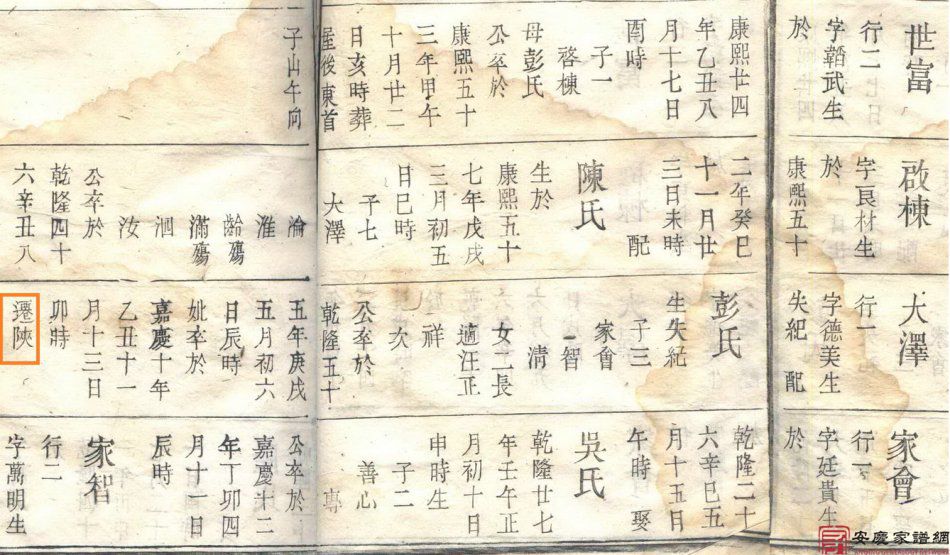 世富
行二
字韜武生
於
康熙廿四
年乙丑八
月十七日
酉時
子一
啓棟
母彭氏
公卒於
康熙五十
三年甲午
十月廿二
日亥時葬
屋後東首
子山午向
啟棟
字良材生
於
康熙五十
二年癸巳
十一月廿
三日未時
配
陳氏
生於
康熙五十
七年戊戌
三月初五
日巳時
子七
大澤
淪
淮
齡殤
滿殤
泗
汝
公卒於
乾隆四十
六辛丑八
大澤
行一
字德美生
失紀 配
彭氏
生失紀
子三
家會
智
清
女二長
適汪正
祥
次
公卒於
乾隆五十
五年庚戌
五月初六
日辰時
妣卒於
嘉慶十年
乙丑十一
月十三日
卯時
遷陝
家會
行一
字廷貴生
於
乾隆二十
六辛巳五
月十五日
午時 娶
吳氏
乾隆廿七
年壬午正
月初十日
申時生
子二
善心
專
公卒於
嘉慶十二
年丁卯四
月十一日
辰時
家智
行二
字萬明生
安慶家譜網